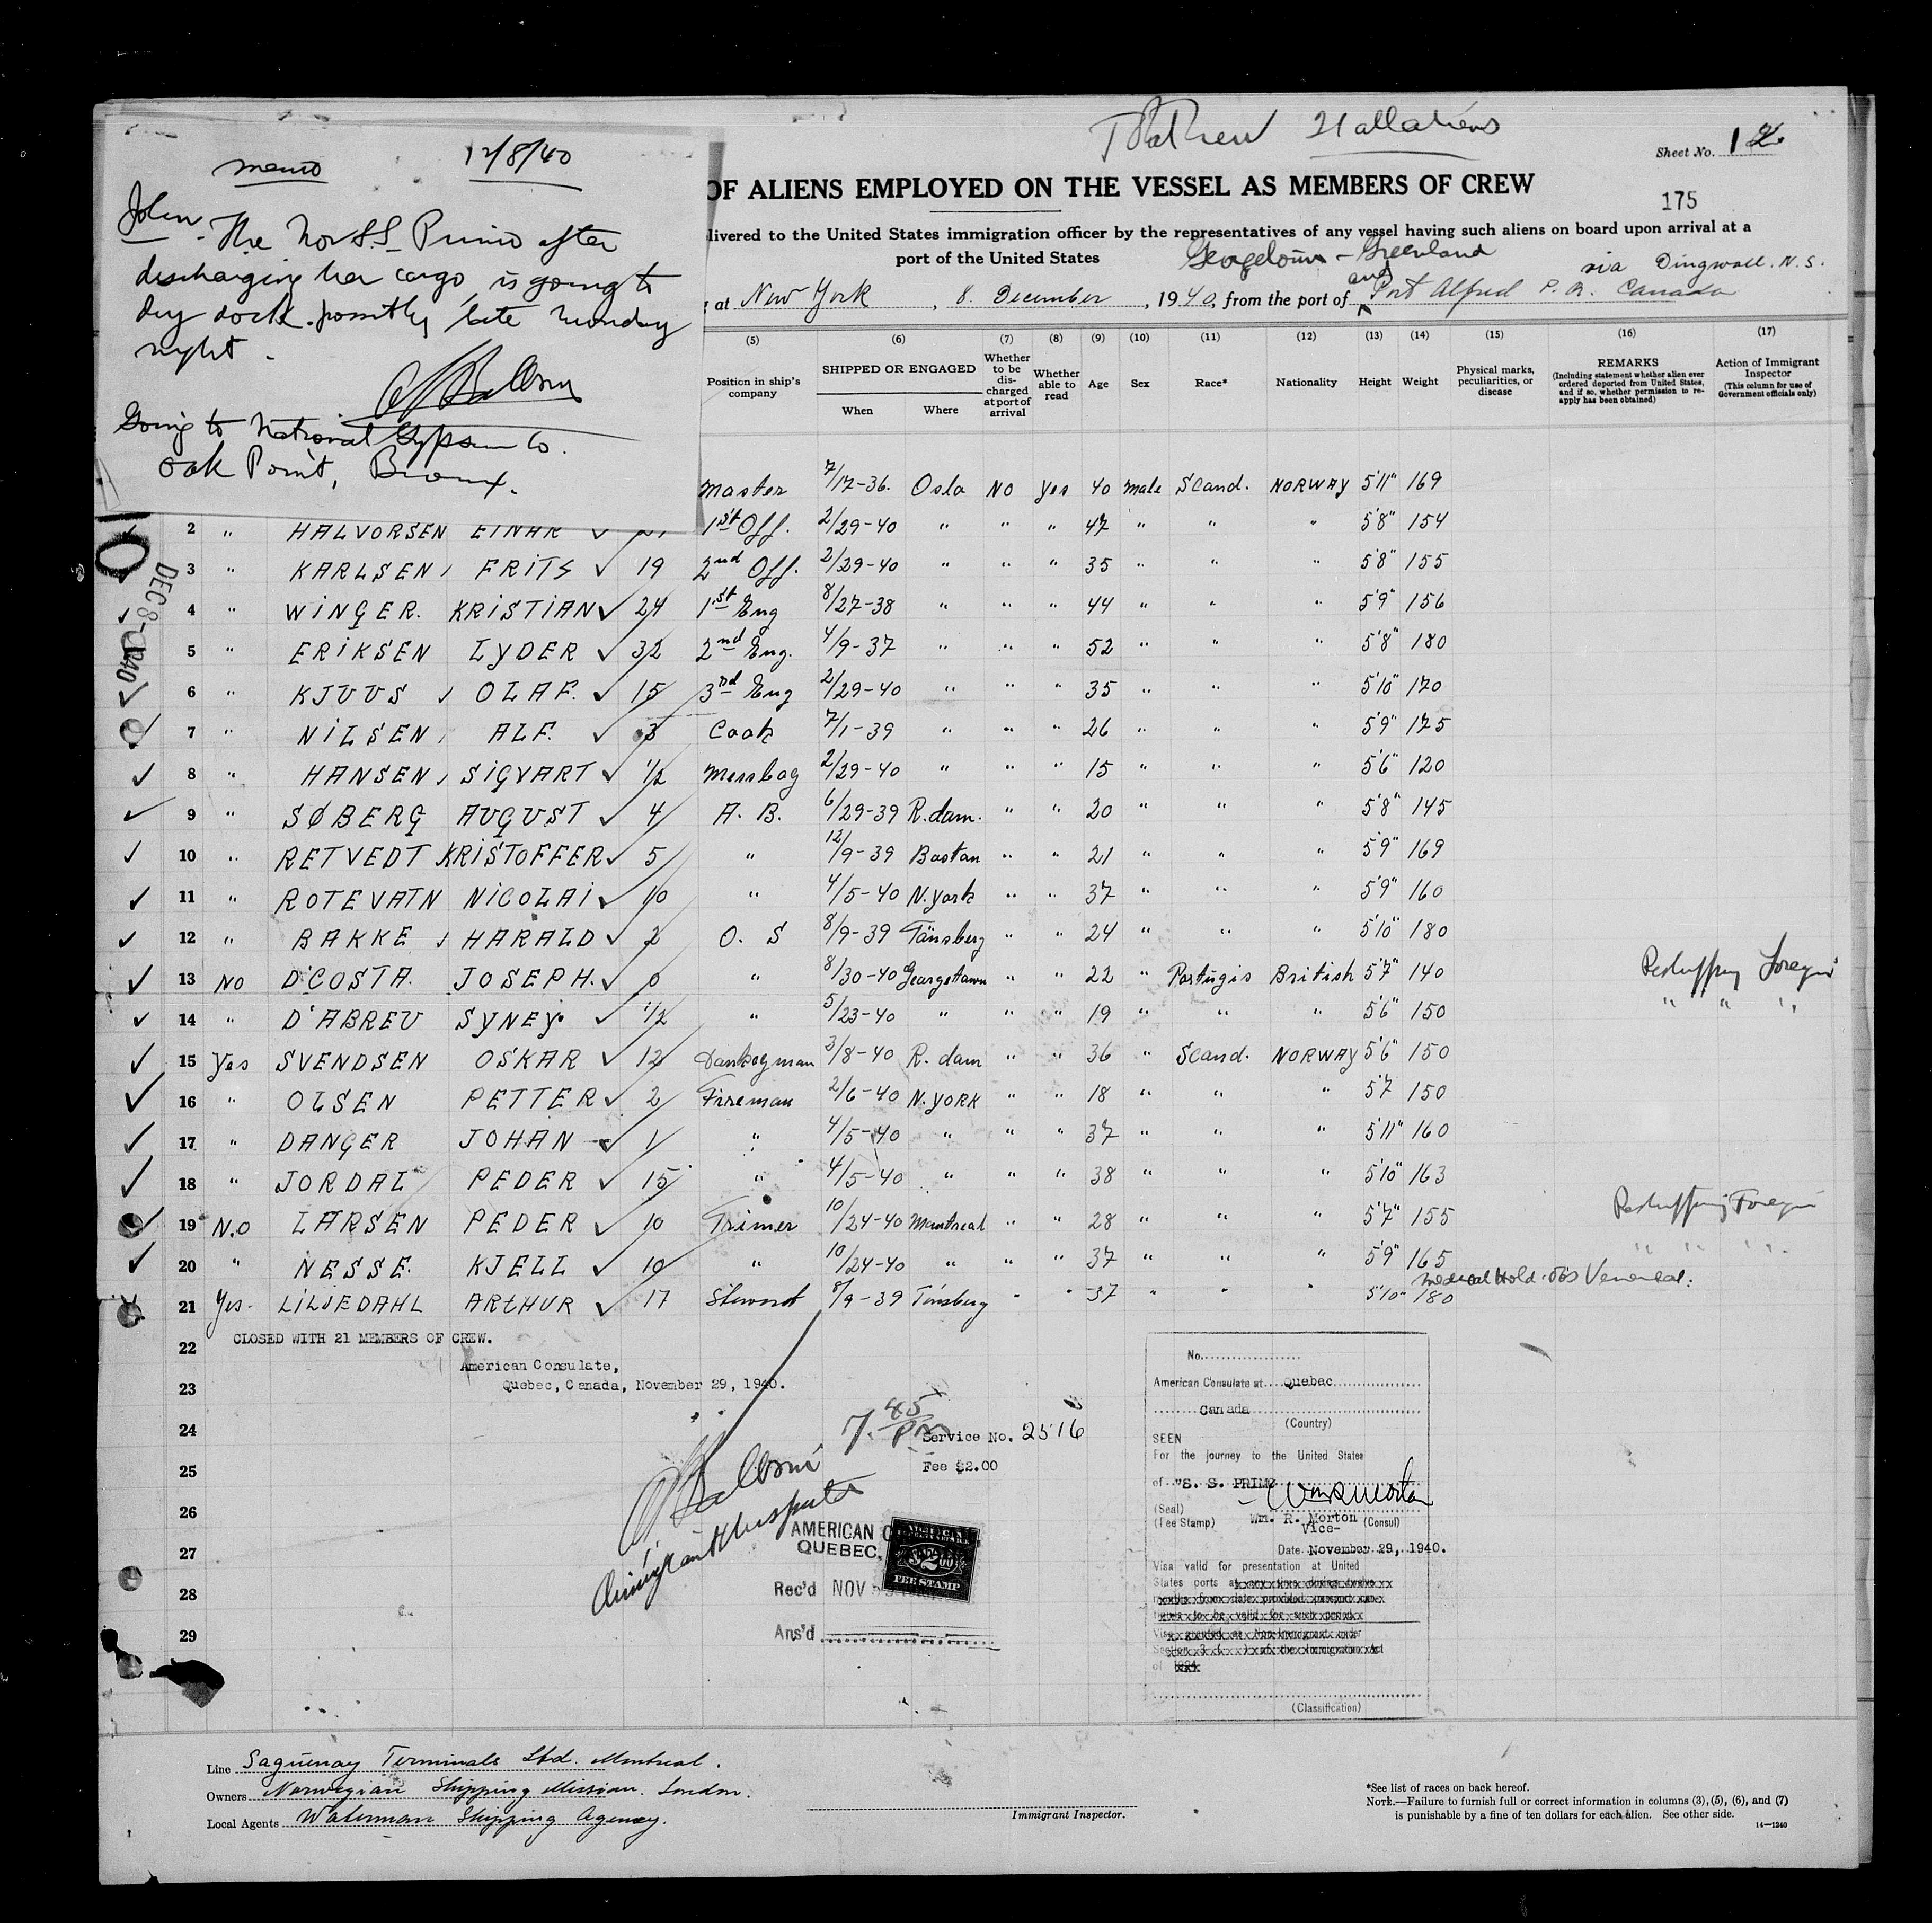 Sheet No. 1
175
memo 12/8/40
John - The Nor S.S. Primo after
discharging her cargo, is going to
dry dock possibly late Monday
night.
Going to National Gypsum Co.
Oak Point, Bronx.
OF ALIENS EMPLOYED ON THE VESSEL AS MEMBERS OF CREW
livered to the United States immigration officer by the representatives of any vessel having such aliens on board upon arrival at a
port of the United States
Georgetown - Greenland
and via Dingwall. N.S.
at New York, 8. December, 1940, from the port of Port Alfred P.Q. Canada
(5) (6) (7) (8) (9) (10) (11) (12) (13) (14) (15) (16) (17)
Position in ship's company
SHIPPED OR ENGAGED
When Where
Whether to be discharged at port of arrival
Whether able to read
Age Sex Race* Nationality Height Weight
Physical marks, peculiarities, or disease
REMARKS
(Including statement whether alien ever ordered deported from United States, and if so, whether permission to reapply has been obtained)
Action of Immigrant Inspector
(This column for use of Government officials only)
Master 7/17-36. Oslo NO yes 40 male Scand. NORWAY 5'11" 169
2 " HALVORSEN EINAR 1st Off. 2/29-40 " " " 47 " " " 5'8" 154
3 " KARLSEN, FRITS 19 2nd Off. 2/29-40 " " " 35 " " " 5'8" 155
4 " WINGER. KRISTIAN 24 1st Eng 8/27-38 " " " 44 " " " 5'9" 156
5 " ERIKSEN LYDER 32 2nd Eng. 4/9-37 " " " 52 " " " 5'8" 180
6 " KJUUS, OLAF. 15 3rd Eng 2/29-40 " " " 35 " " " 5'10" 170
7 " NILSEN, ALF. 3 Cook 7/1-39 " " " 26 " " " 5'9" 175
8 " HANSEN, SIGVART 1/2 Messboy 2/29-40 " " " 15 " " " 5'6" 120
9 " SØBERG AUGUST 4 A. B. 6/29-39 R.dam. " " 20 " " " 5'8" 145
10 " RETVEDT KRISTOFFER 5 " 12/9-39 Boston " " 21 " " " 5'9" 169
11 " ROTEVATN NICOLAI 10 " 4/5-40 N.york " " 37 " " " 5'9" 160
12 " BAKKE, HARALD 2 O. S 8/9-39 Tönsberg " " 24 " " " 5'10" 180
13 NO D'COSTA. JOSEPH. 0 " 8/30-40 Georgetown " " 22 " Portugis British 5'7" 140 Reshipping Foreign
14 " D'ABREU SYNEY 1/2 " 5/23-40 " " " 19 " " " 5'6" 150 " " "
15 Yes SVENDSEN OSKAR 12 Donkeyman 3/8-40 R. dam " " 36 " Scand. NORWAY 5'6" 150
16 " OLSEN PETTER 2 Fireman 2/6-40 N.YORK " " 18 " " " 5'7 150
17 " DANGER JOHAN 1 " 4/5-40 " " " 37 " " " 5'11" 160
18 " JORDAL PEDER 15 " 4/5-40 " " " 38 " " " 5'10" 163
19 N.O LARSEN PEDER 10 Trimer 10/24-40 Montreal " " 28 " " " 5'7" 155 Reshipping Foreign
20 " NESSE. KJELL 10 " 10/24-40 " " " 37 " " " 5'9" 165 " " "
Medical Hold Venereal.
21 Yes. LILJEDAHL ARTHUR 17 Steward 8/9-39 Tönsberg " " 37 " " " 5'10" 180
DEC 8-1940
22
CLOSED WITH 21 MEMBERS OF CREW.
American Consulate,
23
Quebec, Canada, November 29, 1940.
24
7.45 PM
Service No. 2516
25
Fee $2.00
Immigrant Inspector
26
AMERICAN
27
QUEBEC,
$2.00
FEE STAMP
28
Rec'd NOV
29
Ans'd
No.
American Consulate at Quebec
Canada
(Country)
SEEN
For the journey to the United States
of "S. S. PRIMO
(Seal)
(Fee Stamp) Wm. R. Morton (Consul)
Vice-
Date November 29, 1940.
Visa valid for presentation at United
States ports at any time during twelve
months from date provided passport con-
tinues to be valid for such period.
Visa granted as Non-immigrant under
Section 3 ( ) of the Immigration Act
of 1924
(Classification)
Line Saguenay Terminals Ltd. Montreal.
Owners Norwegian Shipping Mission. London.
Local Agents Waterman Shipping Agency.
Immigrant Inspector.
*See list of races on back hereof.
NOTE.—Failure to furnish full or correct information in columns (3), (5), (6), and (7)
is punishable by a fine of ten dollars for each alien. See other side.
14—1240